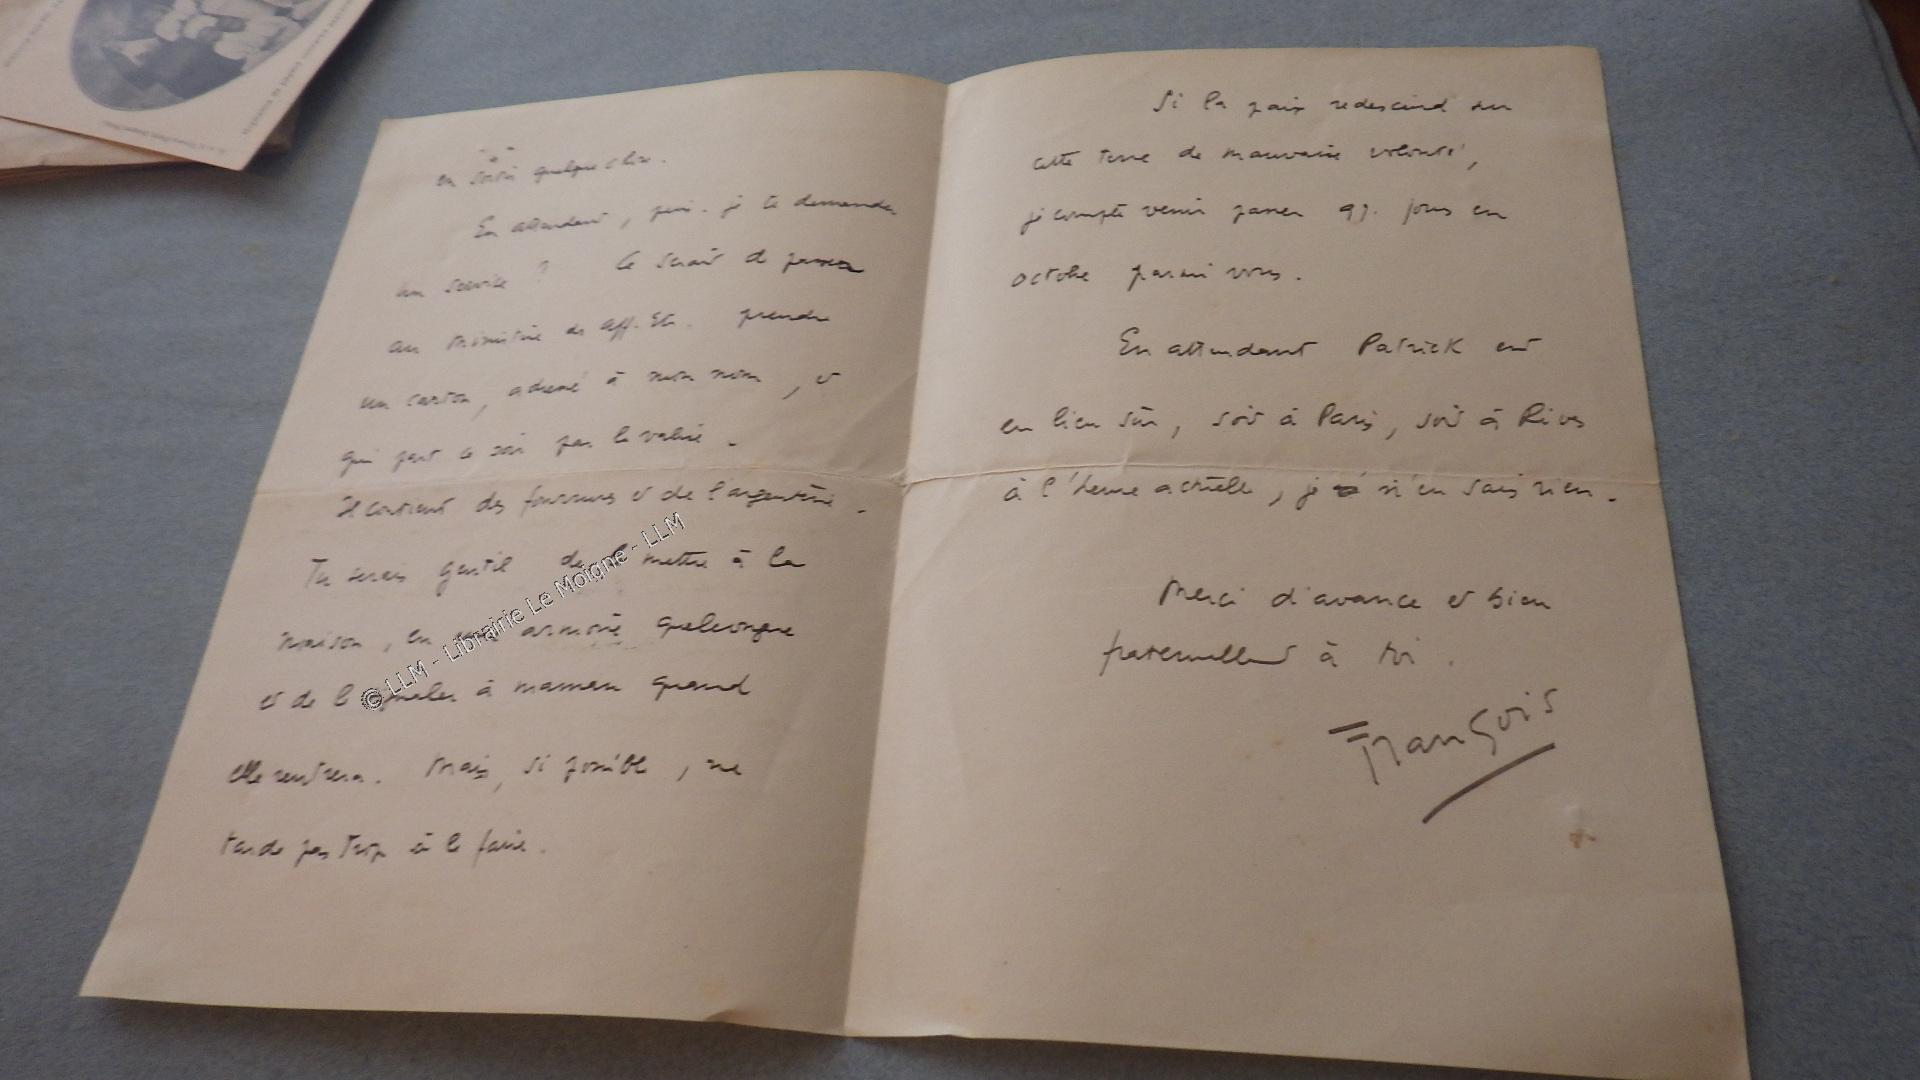 en sortir quelque chose.
En attendant, puis-je te demander
un service ? Ce serait de passer
au ministère des Aff. Et. prendre
un carton, adressé à mon nom, et
qui part ce soir par la valise.
Il contient des fourrures et de l'argenterie.
Tu serais gentil de le mettre à la
maison, en une armoire quelconque
et de le à maman quand
elle rentrera. Mais, si possible, ne
tarde pas trop à le faire.
Si la paix redescend sur
cette terre de mauvaise volonté,
je compte venir passer qq. jours en
octobre parmi vous.
En attendant Patrick est
en lieu sûr, soit à Paris, soit à Rives
à l'heure actuelle, je n'en sais rien.
Merci d'avance et bien
fraternellement à toi.
François
© LLM - Librairie Le Moigne - LLM